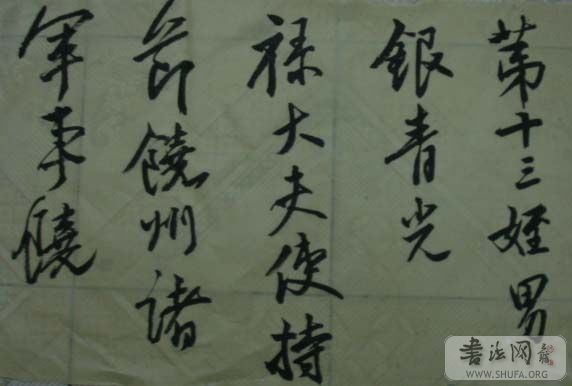 第十三姪男
銀青光
禄大夫使持
節饒州諸
軍事饒
书法网
WWW.SHUFA.ORG